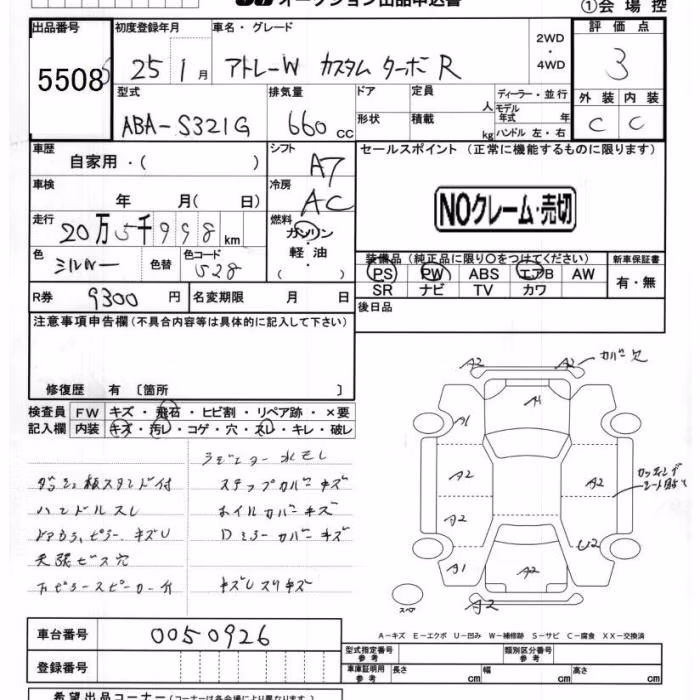 オークション出品申込書
①会場控
出品番号
5508
初度登録年月
25 1月
車名・グレード
アトレーW カスタム ターボ R
2WD
・
4WD
評価点
3
型式
ABA-S321G
排気量
660 cc
ドア
形状
定員 人
積載 kg
ディーラー・並行
モデル年式 年
ハンドル 左・右
外装 内装
C C
車歴
自家用・( )
シフト
A7
セールスポイント (正常に機能するものに限ります)
車検
年 月( 日)
冷房
AC
NOクレーム・売切
走行
20万5千998km
燃料
ガソリン
・
軽油
( )
色
シルバー
色替
色コード
S28
装備品 (純正品に限り○をつけてください)
PS PW ABS エアB AW
SR ナビ TV カワ
新車保証書
有・無
R券 9300円
名変期限 月 日
後日品
注意事項申告欄(不具合内容等は具体的に記入して下さい)
修復歴 有 〔箇所 〕
検査員
記入欄
FW キズ・飛石・ヒビ割・リペア跡・×要
内装 キズ・汚レ・コゲ・穴・スレ・キレ・破レ
ラジエター水モレ
ダッシュ板スタンド付
ステップカバーキズ
ハンドルスレ
ホイルカバーキズ
Dミラーカバーキズ
天張ビス穴
キズUスリキズ
A2 A2 カバー欠
A1 A1
A2 A2
A2
U2
A1 A2
A2
スペア
A-キズ E-エクボ U-凹み W-補修跡 S-サビ C-腐食 XX-交換済
車台番号 0050926
登録番号
型式指定番号 参考
類別区分番号 参考
車庫証明用 参考
長さ cm 幅 cm 高さ cm
希望出品コーナー(コーナーは各会場により異なります。)